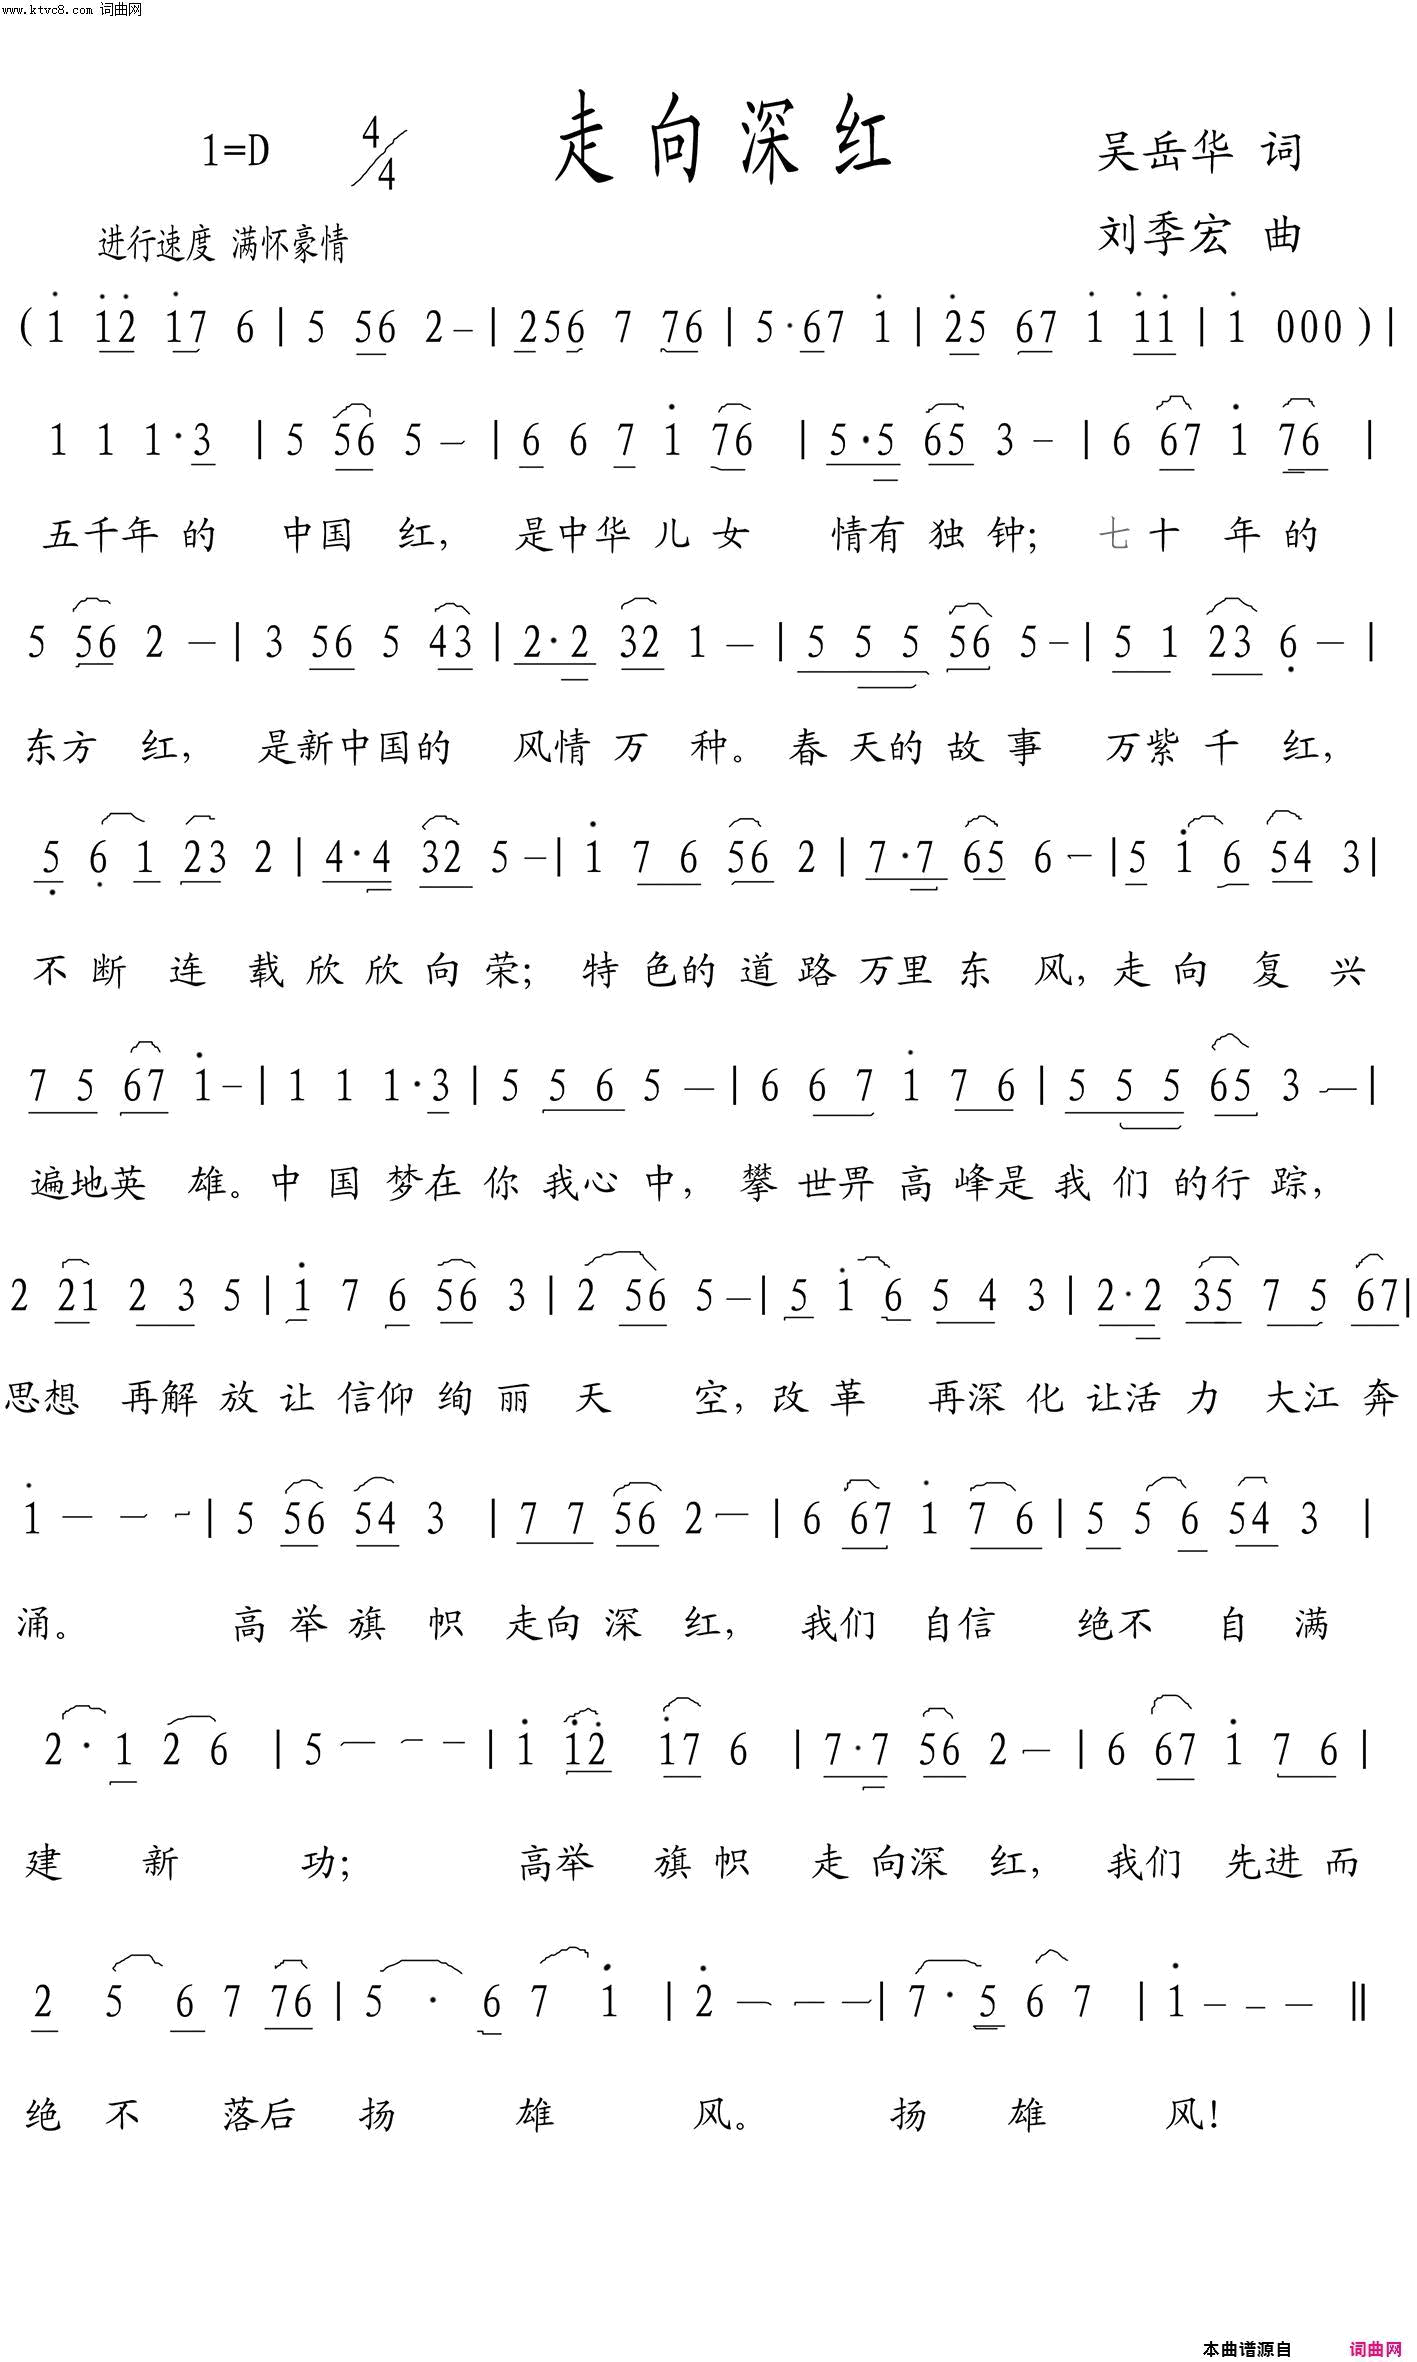 www.ktvc8.com 词曲网
走向深红
1=D 4/4
吴岳华 词
进行速度 满怀豪情
刘季宏 曲
( i̇ i̇2̇ i̇7 6 | 5 56 2 – | 256 7 76 | 5·67 i̇ | 2̇5 67 i̇ i̇i̇ | i̇ 000 ) |
1 1 1·3 | 5 56 5 – | 6 6 7 i̇ 76 | 5·5 65 3 – | 6 67 i̇ 76 |
五千年的 中国 红, 是中华儿女 情有独钟; 七十 年的
5 56 2 – | 3 56 5 43 | 2·2 32 1 – | 5 5 5 56 5 – | 5 1 23 6̣ – |
东方 红, 是新中国的 风情万 种。 春天的故事 万紫千 红,
5̣ 6̣ 1 23 2 | 4·4 32 5 – | i̇ 7 6 56 2 | 7·7 65 6 – | 5 i̇ 6 54 3 |
不断 连 载欣欣向荣; 特色的道路万里东 风, 走向 复 兴
7 5 67 i̇ – | 1 1 1·3 | 5 5 6 5 – | 6 6 7 i̇ 7 6 | 5 5 5 65 3 – |
遍地英 雄。中国梦在你我心中, 攀世界高峰是我们的行踪,
2 21 2 3 5 | i̇ 7 6 56 3 | 2 56 5 – | 5 i̇ 6 5 4 3 | 2·2 35 7 5 67 |
思想 再解放让信仰绚丽 天 空, 改革 再深化让活力 大江奔
i̇ – – – | 5 56 54 3 | 7 7 56 2 – | 6 67 i̇ 7 6 | 5 5 6 54 3 |
涌。 高举旗 帜 走向深 红, 我们 自信 绝不 自 满
2·1 2 6 | 5 – – – | i̇ i̇2̇ i̇7 6 | 7·7 56 2 – | 6 67 i̇ 7 6 |
建 新 功; 高举 旗帜 走向深 红, 我们 先进而
2 5 6 7 76 | 5 · 6 7 i̇ | 2̇ – – – | 7·5 6 7 | i̇ – – – ‖
绝 不 落后 扬 雄 风。 扬 雄 风!
本曲谱源自 词曲网